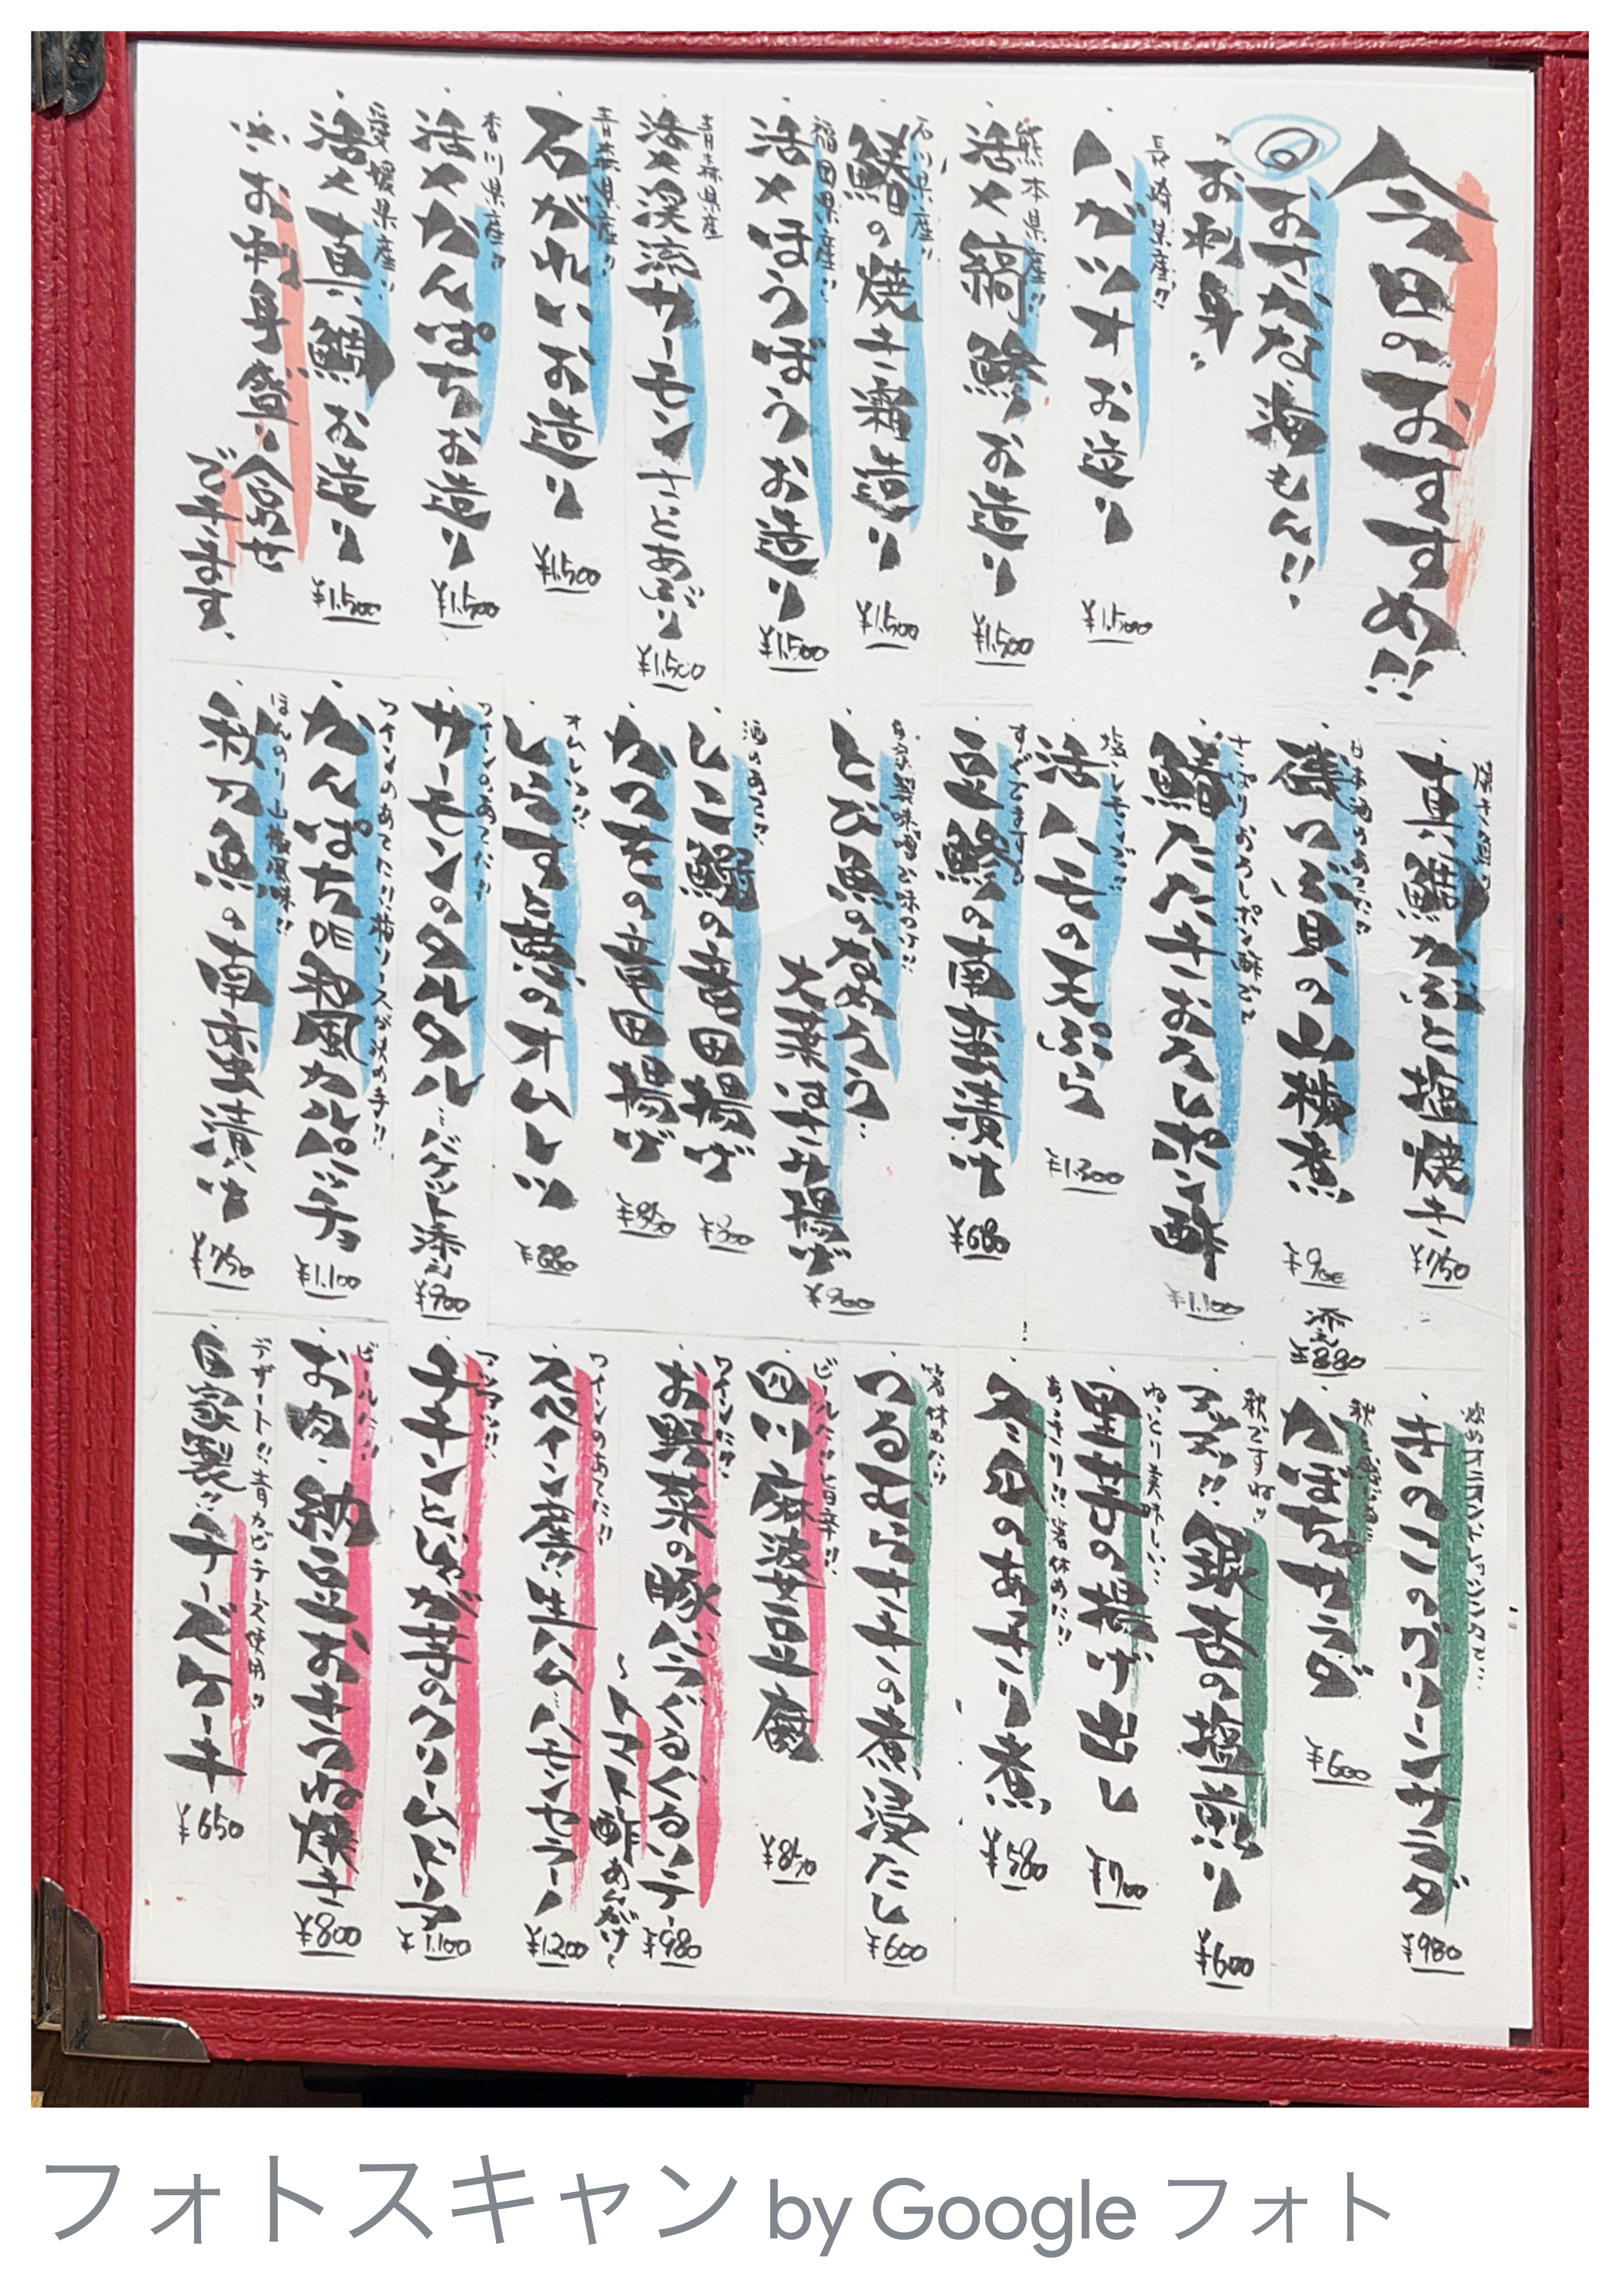 今日のおすすめ!!
◎おさかな海もん!!
お刺身
長崎県産!!
ハガツオお造り ¥1,500
熊本県産!!
活〆縞鯵お造り ¥1,500
石川県産!!
鰆の焼き霜造り ¥1,500
福田県産!!
活〆ほうぼうお造り ¥1,500
青森県産
活〆渓流サーモン さっとあぶり ¥1,500
青森県産!!
石がれいお造り ¥1,500
香川県産!!
活〆かんぱちお造り ¥1,500
愛媛県産!!
活〆真鯛お造り ¥1,500
※お刺身盛り合わせ
できます。
真鯛かぶと塩焼き ¥750
日本酒のあてに!!
磯つぶ貝の山椒煮 ¥900
さっぱりおろしポン酢にて
鰆たたきおろしポン酢 ¥1,100
塩レモンで!!
活ハモの天ぷら ¥1,300
豆鯵の南蛮漬け ¥680
自家製味噌で味つけ!!
とび魚のなめろう…
大葉はさみ揚げ ¥900
酒のあてに!!
しこ鰯の竜田揚げ ¥800
かつをの竜田揚げ ¥850
オムレツ!!
しらすと葱のオムレツ ¥880
ワインのあてに!!
サーモンのタルタル…バケット添え ¥900
ワインのあてに!!梅ソースが決め手!!
かんぱちDE和風カルパッチョ ¥1,100
ほんのり山椒風味!!
秋刀魚の南蛮漬け ¥750
きのこのグリーンサラダ ¥980
かぼちゃサラダ ¥600
秋ですね!!
アツアツ!!銀杏の塩煎り ¥600
ねっとり美味しい…
里芋の揚げ出し ¥700
あっさり!!箸休めに!!
冬瓜のあっさり煮 ¥580
箸休めに!!
つるむらさきの煮浸たし ¥600
ビールに!!旨辛!!
四川麻婆豆腐 ¥850
ワインに!!
お野菜の豚バラぐるぐるソテー ¥980
〜トマト酢あんがけ〜
ワインのあてに!!
スペイン産!!生ハム…ハモンセラーノ ¥1,200
アツアツ!!
チキンとじゃが芋のクリームドリア ¥1,100
ビールに!!
お肉、納豆おきつね焼き ¥800
デザート!!青カビチーズ使用!!
自家製!!チーズケーキ ¥650
フォトスキャン by Google フォト